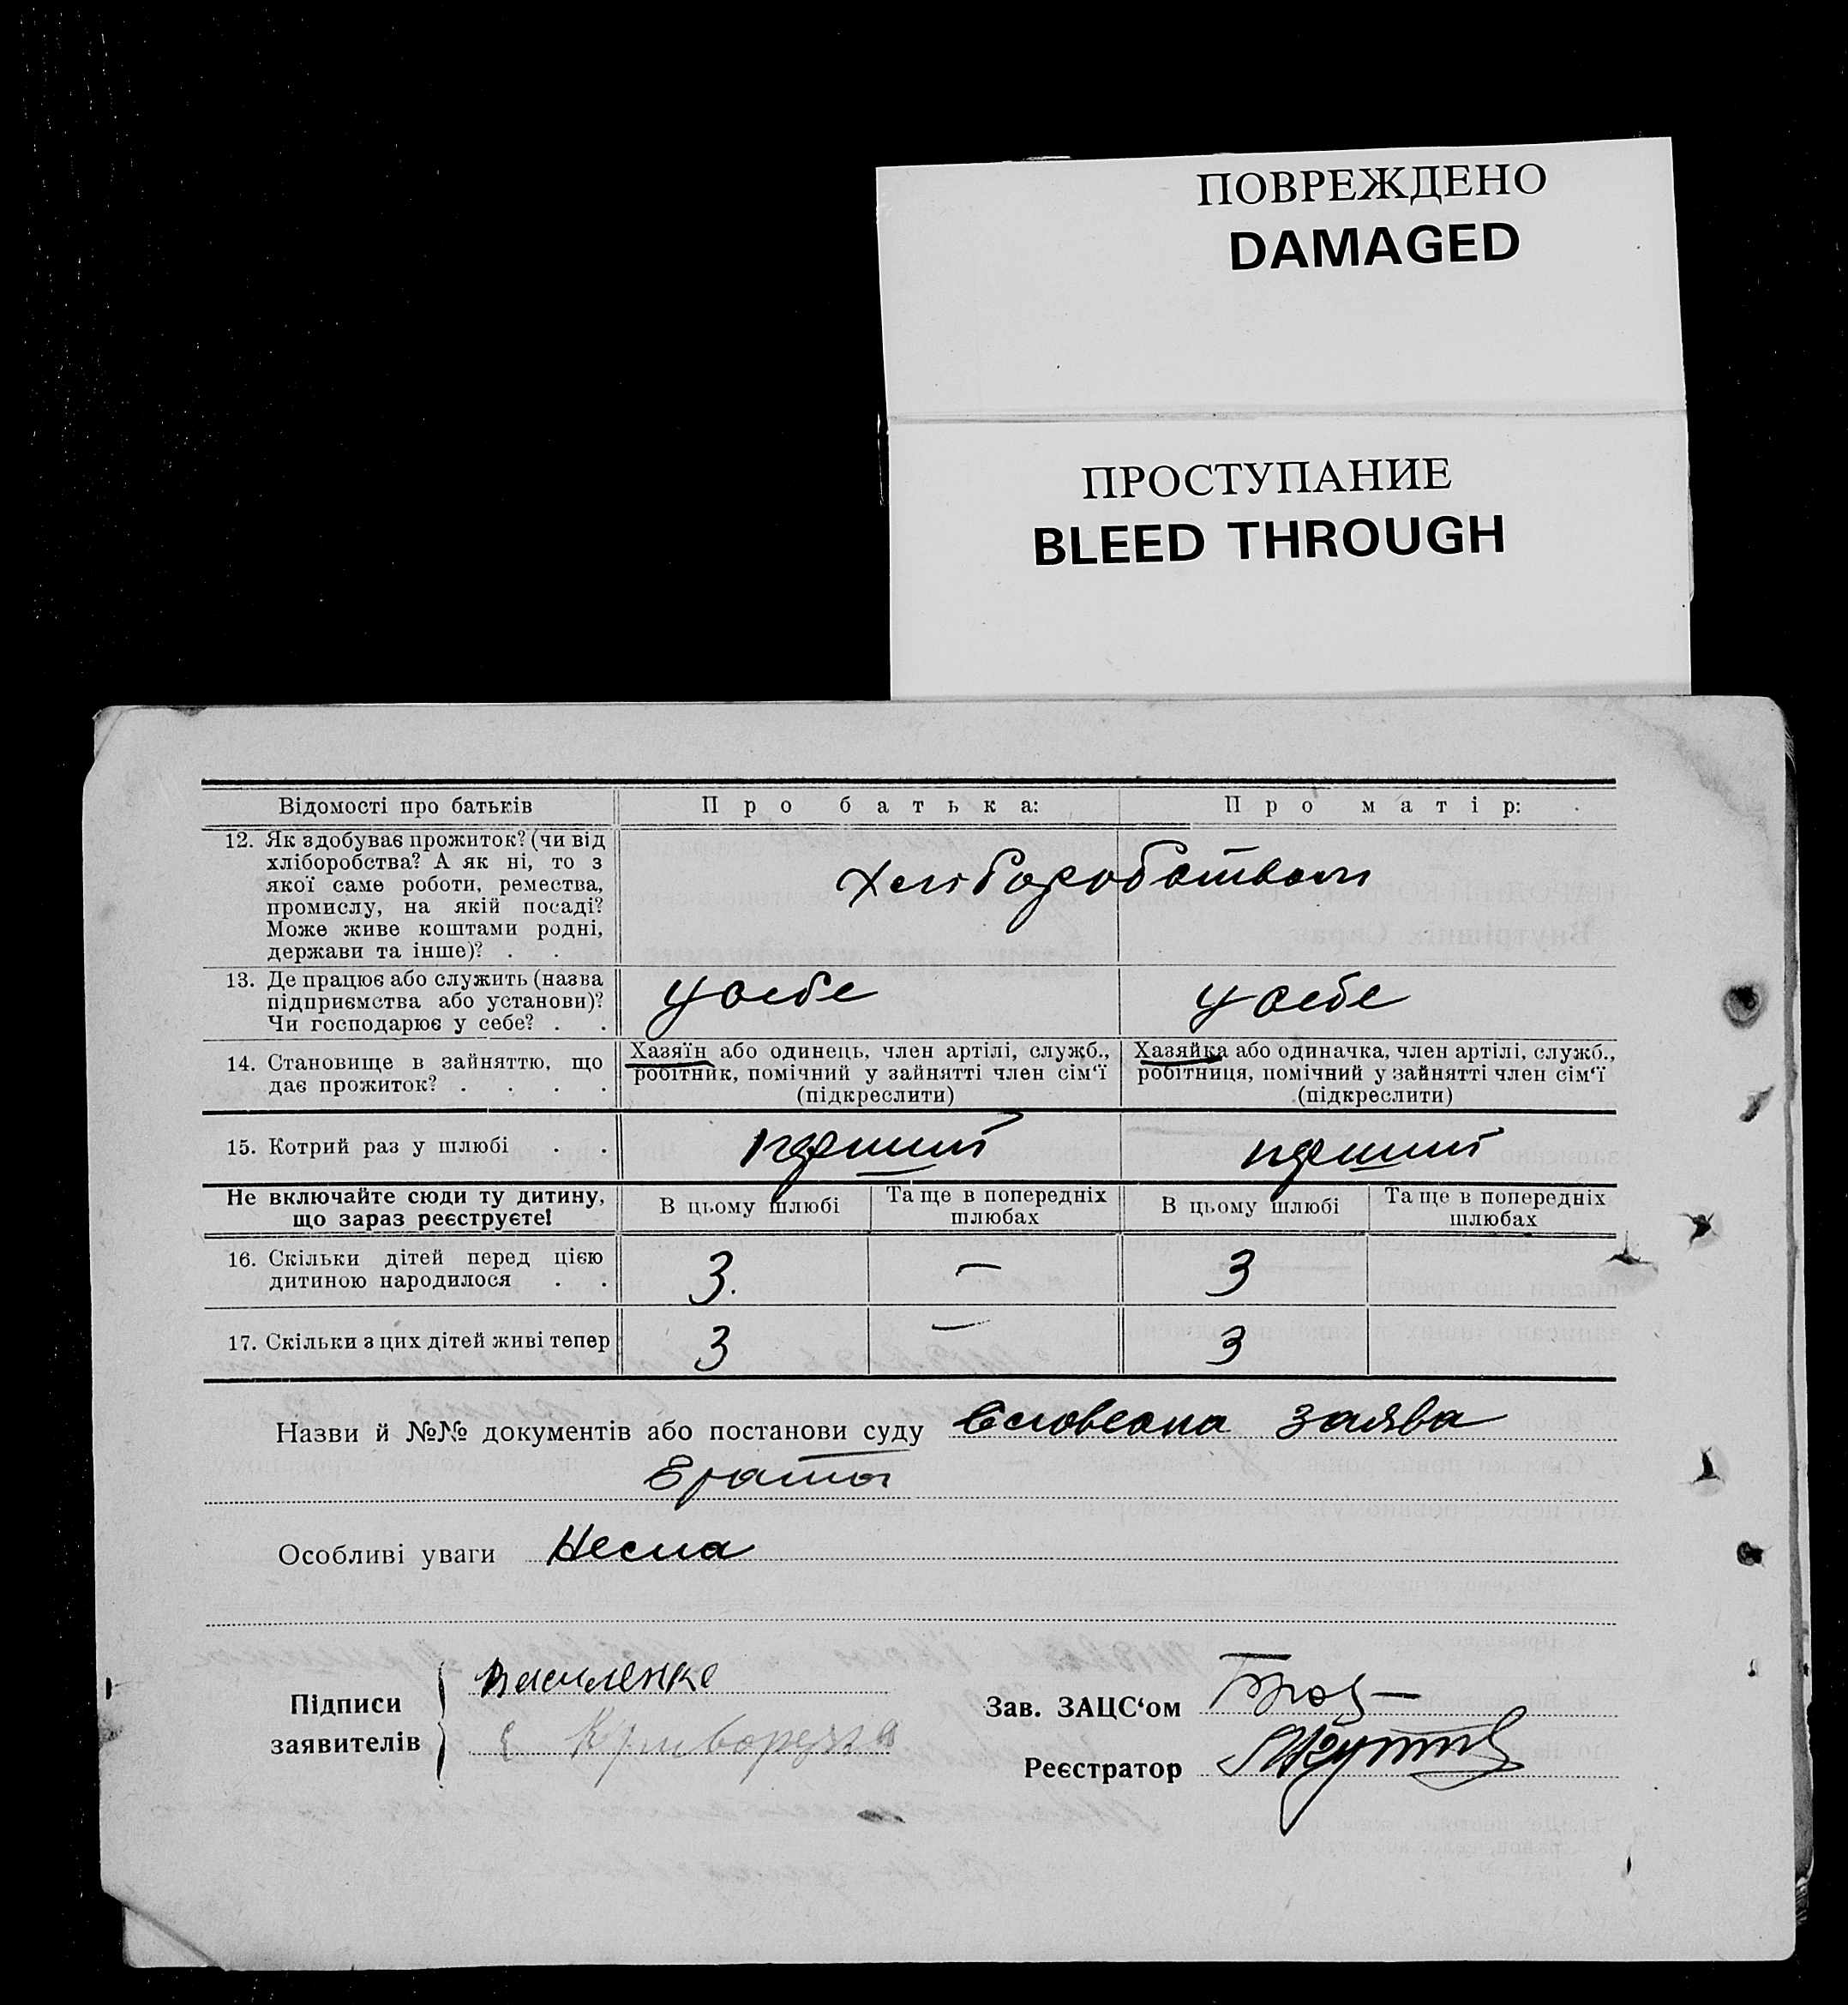 ПОВРЕЖДЕНО
DAMAGED
ПРОСТУПАНИЕ
BLEED THROUGH
Відомості про батьків
Про батька:
Про матір:
12. Як здобуває прожиток? (чи від
хліборобства? А як ні, то з
якої саме роботи, ремества,
промислу, на якій посаді?
Може живе коштами родні,
держави та інше)? . .
хліборобством
13. Де працює або служить (назва
підприємства або установи)?
Чи господарює у себе? . .
у себе
у себе
14. Становище в зайняттю, що
дає прожиток? . . . .
Хазяїн або одинець, член артілі, служб.,
робітник, помічний у зайнятті член сім'ї
(підкреслити)
Хазяйка або одиначка, член артілі, служб.,
робітниця, помічний у зайнятті член сім'ї
(підкреслити)
15. Котрий раз у шлюбі . .
перший
перший
Не включайте сюди ту дитину,
що зараз реєструєте!
В цьому шлюбі
Та ще в попередніх
шлюбах
В цьому шлюбі
Та ще в попередніх
шлюбах
16. Скільки дітей перед цією
дитиною народилося . .
3.
—
3
17. Скільки з цих дітей живі тепер
3
—
3
Назви й №№ документів або постанови суду Словесна заява
Особливі уваги Нема
Підписи
заявителів
Василенко
Зав. ЗАЦС'ом
Реєстратор